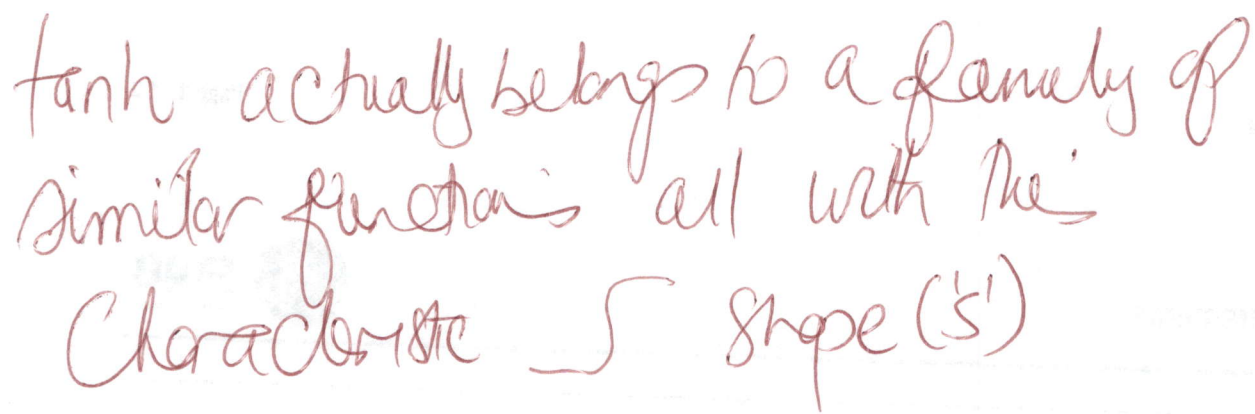 tanh actually belongs to a family of
similar functions all with this
Characteristic ∫ shape ('s')